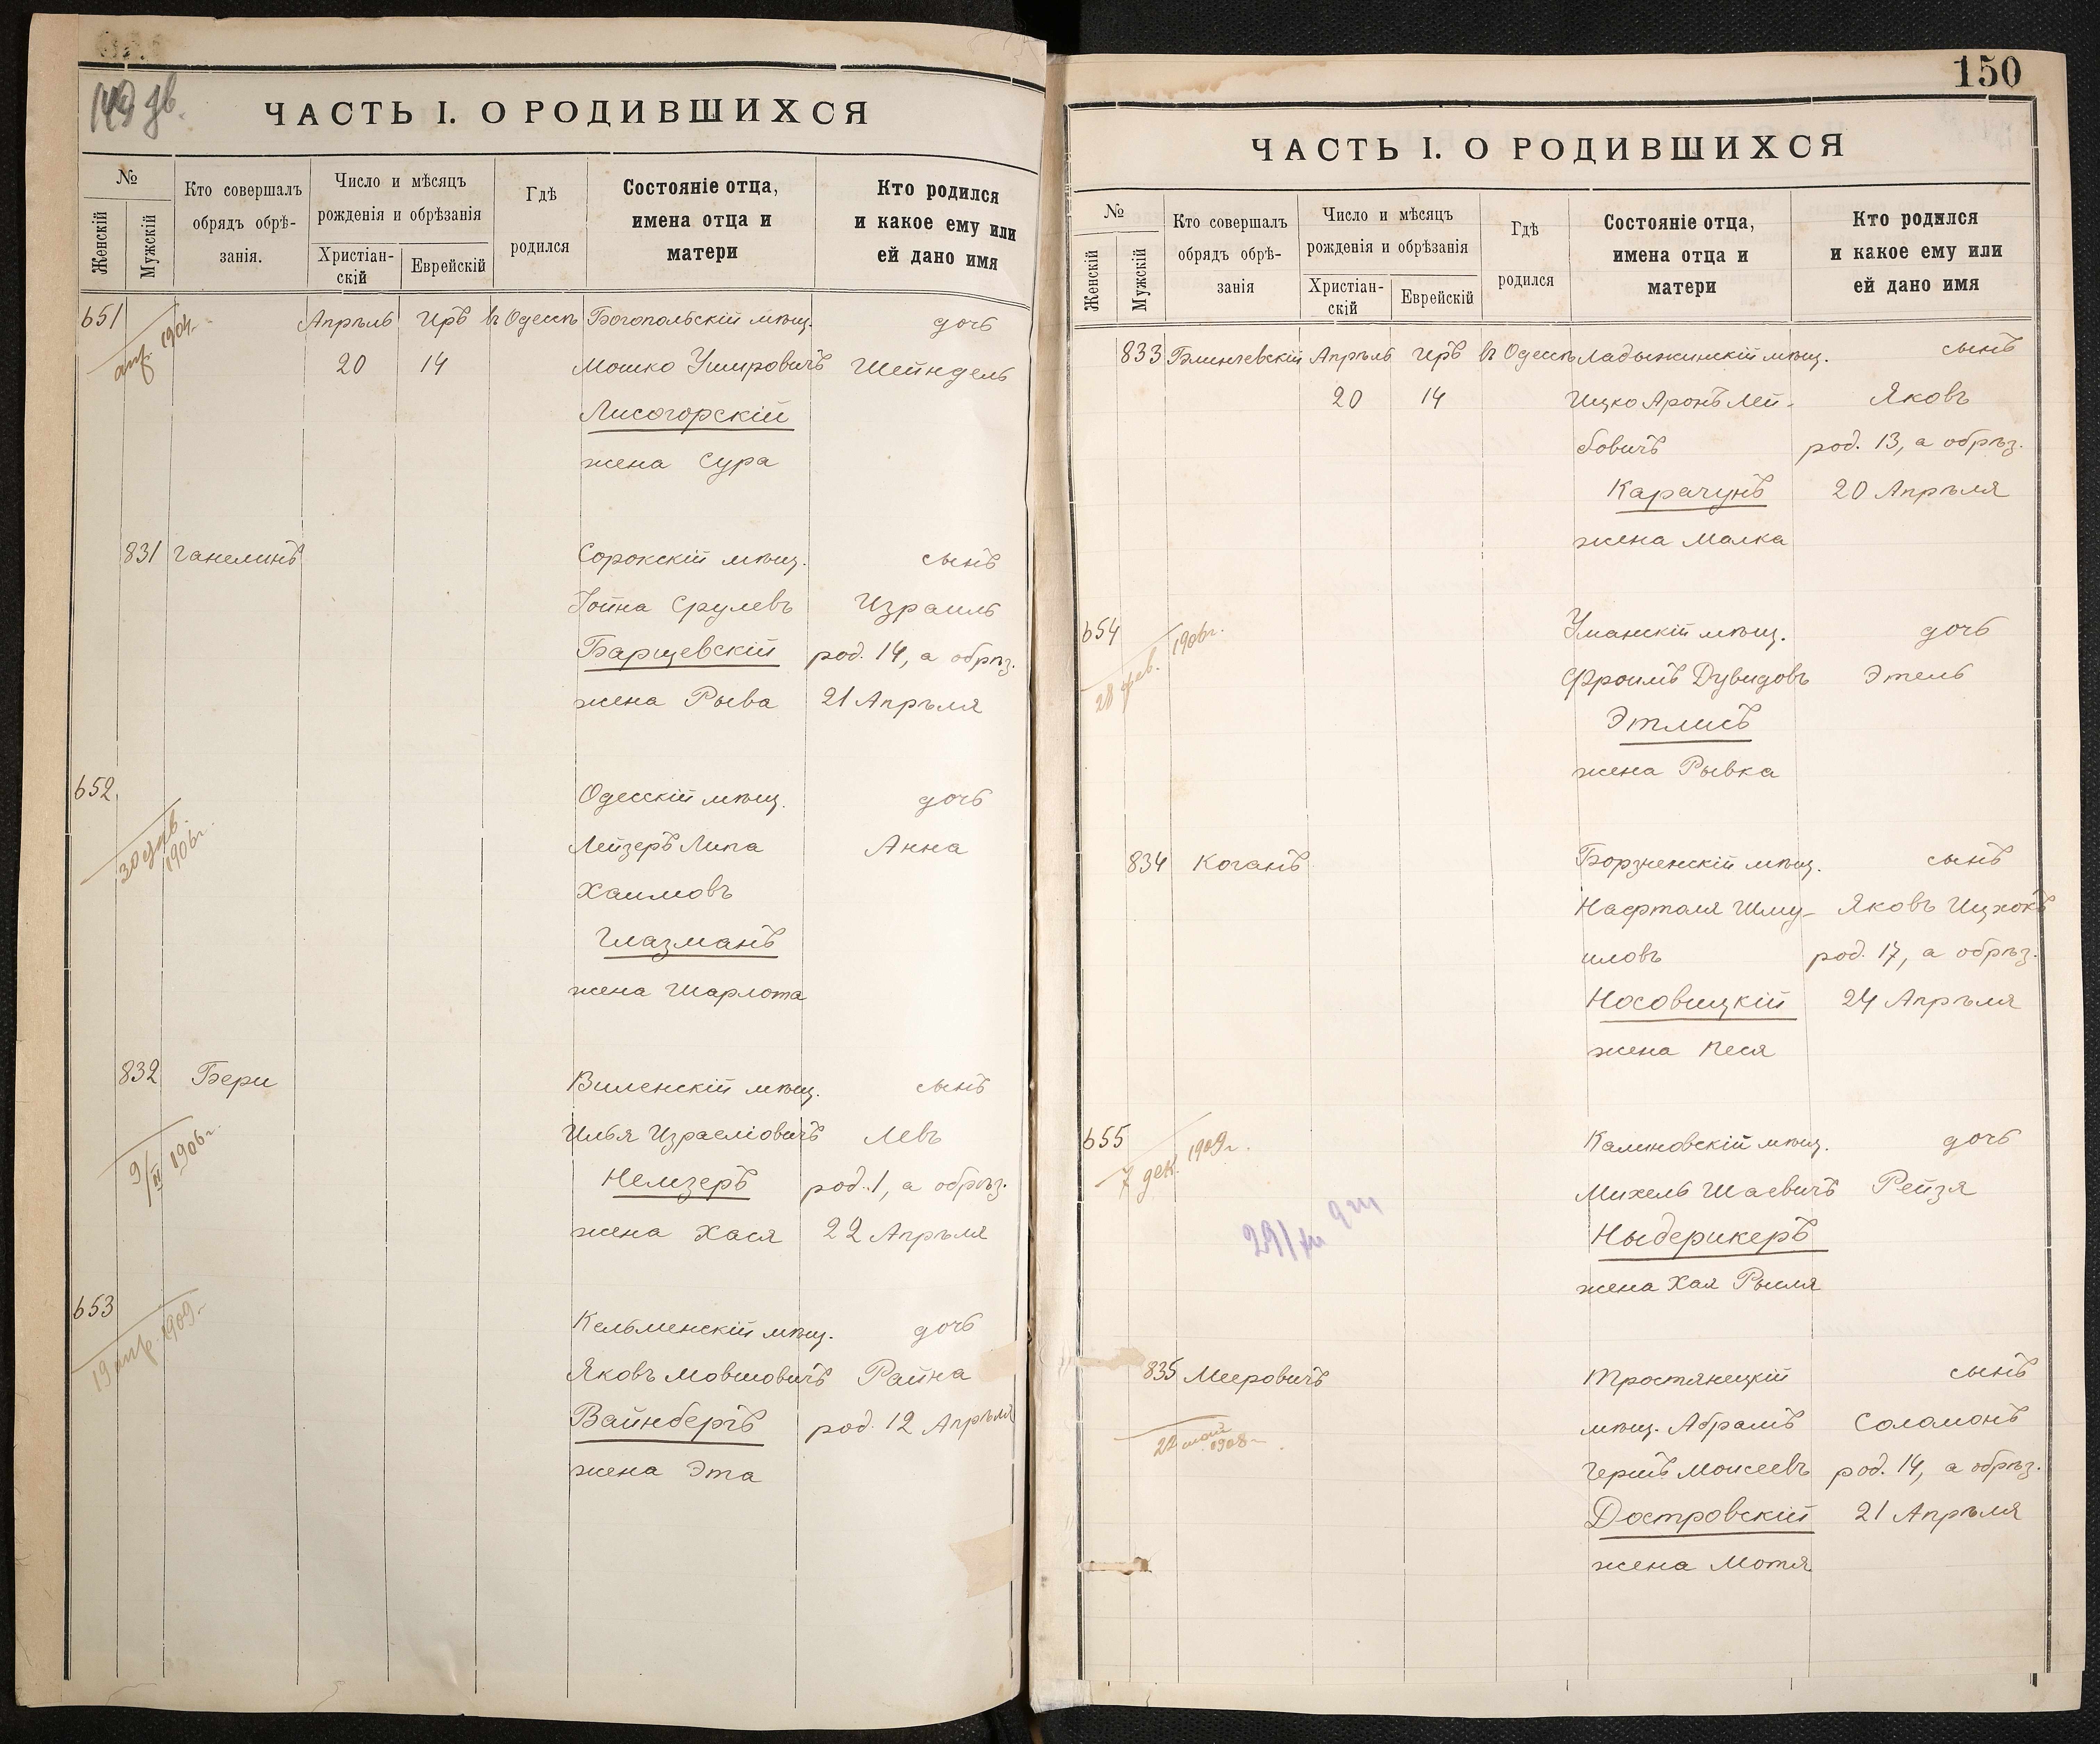 149 дв.
ЧАСТЬ I. О РОДИВШИХСЯ
№
Женскій
Мужскій
Кто совершалъ
обрядъ обрѣ-
занія.
Число и мѣсяцъ
рожденія и обрѣзанія
Христіан-
скій
Еврейскій
Гдѣ
родился
Состояніе отца,
имена отца и
матери
Кто родился
и какое ему или
ей дано имя
651 Апрѣль Иръ въ Одессѣ Богопольскій мѣщ. дочь
20 14 Мошко Ушеровичъ Шейндель
Лисогорскій
жена Сура
831 Ганелинъ Сорокскій мѣщ. сынъ
Іойна Срулевъ Израиль
Барщевскій род. 14, а обрѣз.
жена Рыва 21 Апрѣля
652 Одесскій мѣщ. дочь
30 янв. 1906 г. Лейзеръ Липа Анна
Хаимовъ
Глазманъ
жена Шарлота
832 Бери Виленскій мѣщ. сынъ
Илья Израелiовичъ Левъ
9/II 1906 г. Немзеръ род. 1, а обрѣз.
жена Хася 22 Апрѣля
653 Кельменскій мѣщ. дочь
19 апр. 1909 г. Яковъ Мовшовичъ Райна
Вайнбергъ род. 12 Апрѣля
жена Эта
150
ЧАСТЬ I. О РОДИВШИХСЯ
№
Женскій
Мужскій
Кто совершалъ
обрядъ обрѣ-
занія
Число и мѣсяцъ
рожденія и обрѣзанія
Христіан-
скій
Еврейскій
Гдѣ
родился
Состояніе отца,
имена отца и
матери
Кто родился
и какое ему или
ей дано имя
833 Блинчевскій Апрѣль Иръ въ Одессѣ Ладыжинскій мѣщ. сынъ
20 14 Ицко Аронъ Лей- Яковъ
бовичъ род. 13, а обрѣз.
Карачунъ 20 Апрѣля
жена Малка
654 Уманскій мѣщ. дочь
28 фев. 1906 г. Фроимъ Дувидовъ Этель
Этлисъ
жена Рывка
834 Коганъ Борзненскій мѣщ. сынъ
Нафталя Шму- Яковъ Ицхокъ
иловъ род. 17, а обрѣз.
Носовицкій 24 Апрѣля
жена Песя
655 Калиновскій мѣщ. дочь
7 дек. 1909 г. Михель Шаевичъ Рейзя
Ныдерикеръ
жена Хая Рыля
835 Мееровичъ Тростянецкій сынъ
мѣщ. Абрамъ Соломонъ
1908 г. Гершъ Моисеевъ род. 14, а обрѣз.
Достровскій 21 Апрѣля
жена Мотя